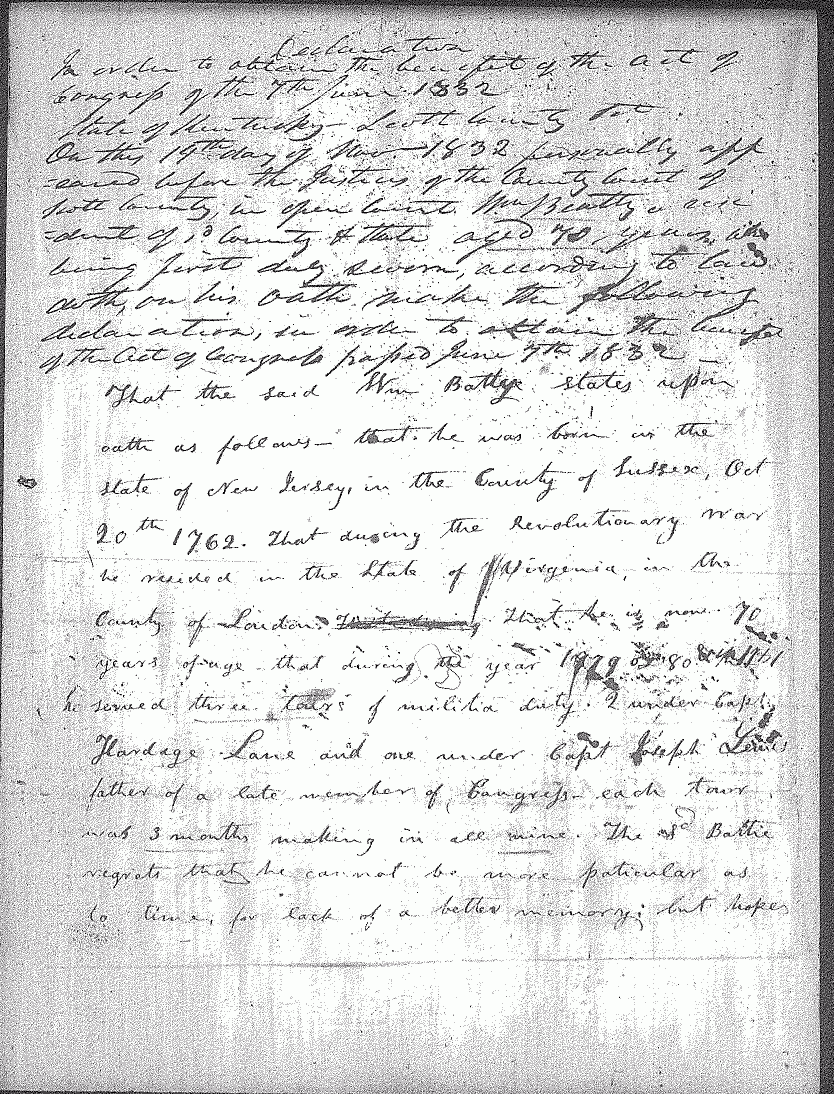 Declaration
In order to obtain the benefit of the act of
Congress of the 7th June 1832
State of Kentucky Scott County Sct.
On this 19th day of Nov 1832 personally app
=eared before the Justices of the County Court of
Scott County, in open Court Wm Beatty a resi
=dent of sd County & State aged 70, years, who
being first duly sworn, according to law
doth, on his oath make the following
declaration, in order to obtain the benefit
of the Act of Congress passed June 7th 1832
That the said Wm Battye states upon
oath as follows— that he was born in the
state of New Jersey, in the County of Sussex, Oct
20th 1762. That during the Revolutionary War
he resided in the State of Virgenia, in the
County of Loudon. That he is now 70
years of age that during the year 1979 or 80
he served three tours of militia duty. 2 under Capt.
Hardage Lane and one under Capt Joseph Lewis
father of a late member of Congress each tour
was 3 months making in all nine. The sd Battie
regrets that he cannot be more paticular as
to time, for lack of a better memory; but hopes